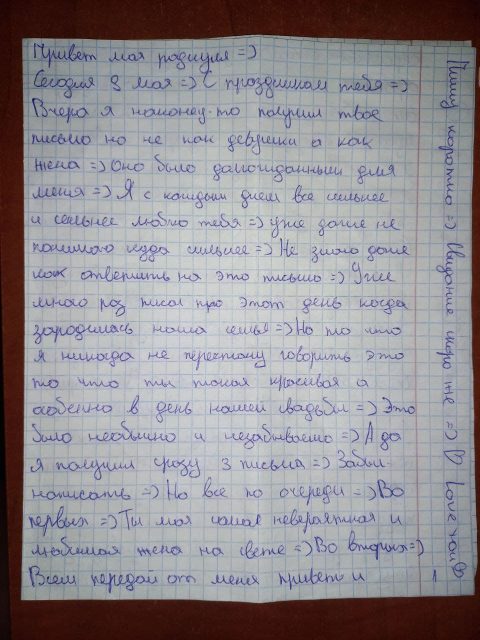 Привет моя роднуля =)
Сегодня 9 мая =) С праздником тебя =)
Вчера я наконец-то получил твое
письмо но не как девушки а как
жена =) Оно было долгожданным для
меня =) Я с каждым днем все сильнее
и сильнее люблю тебя =) уже даже не
понимаю куда сильнее =) Не знаю даже
как ответить на это письмо =) Уже
много раз писал про этот день когда
зародилась наша семья =) Но то что
я никогда не перестану говорить это
то что ты такая красивая а
особенно в день нашей свадьбы =) Это
было необычно и незабываемо =) А да
я получил сразу 3 письма =) Забыл
написать =) Но все по очереди =) Во
первых =) Ты моя самая невероятная и
любимая жена на свете =) Во вторых =)
Всем передай от меня привет и
Пишу коротко =) Свидание скоро же =) Love